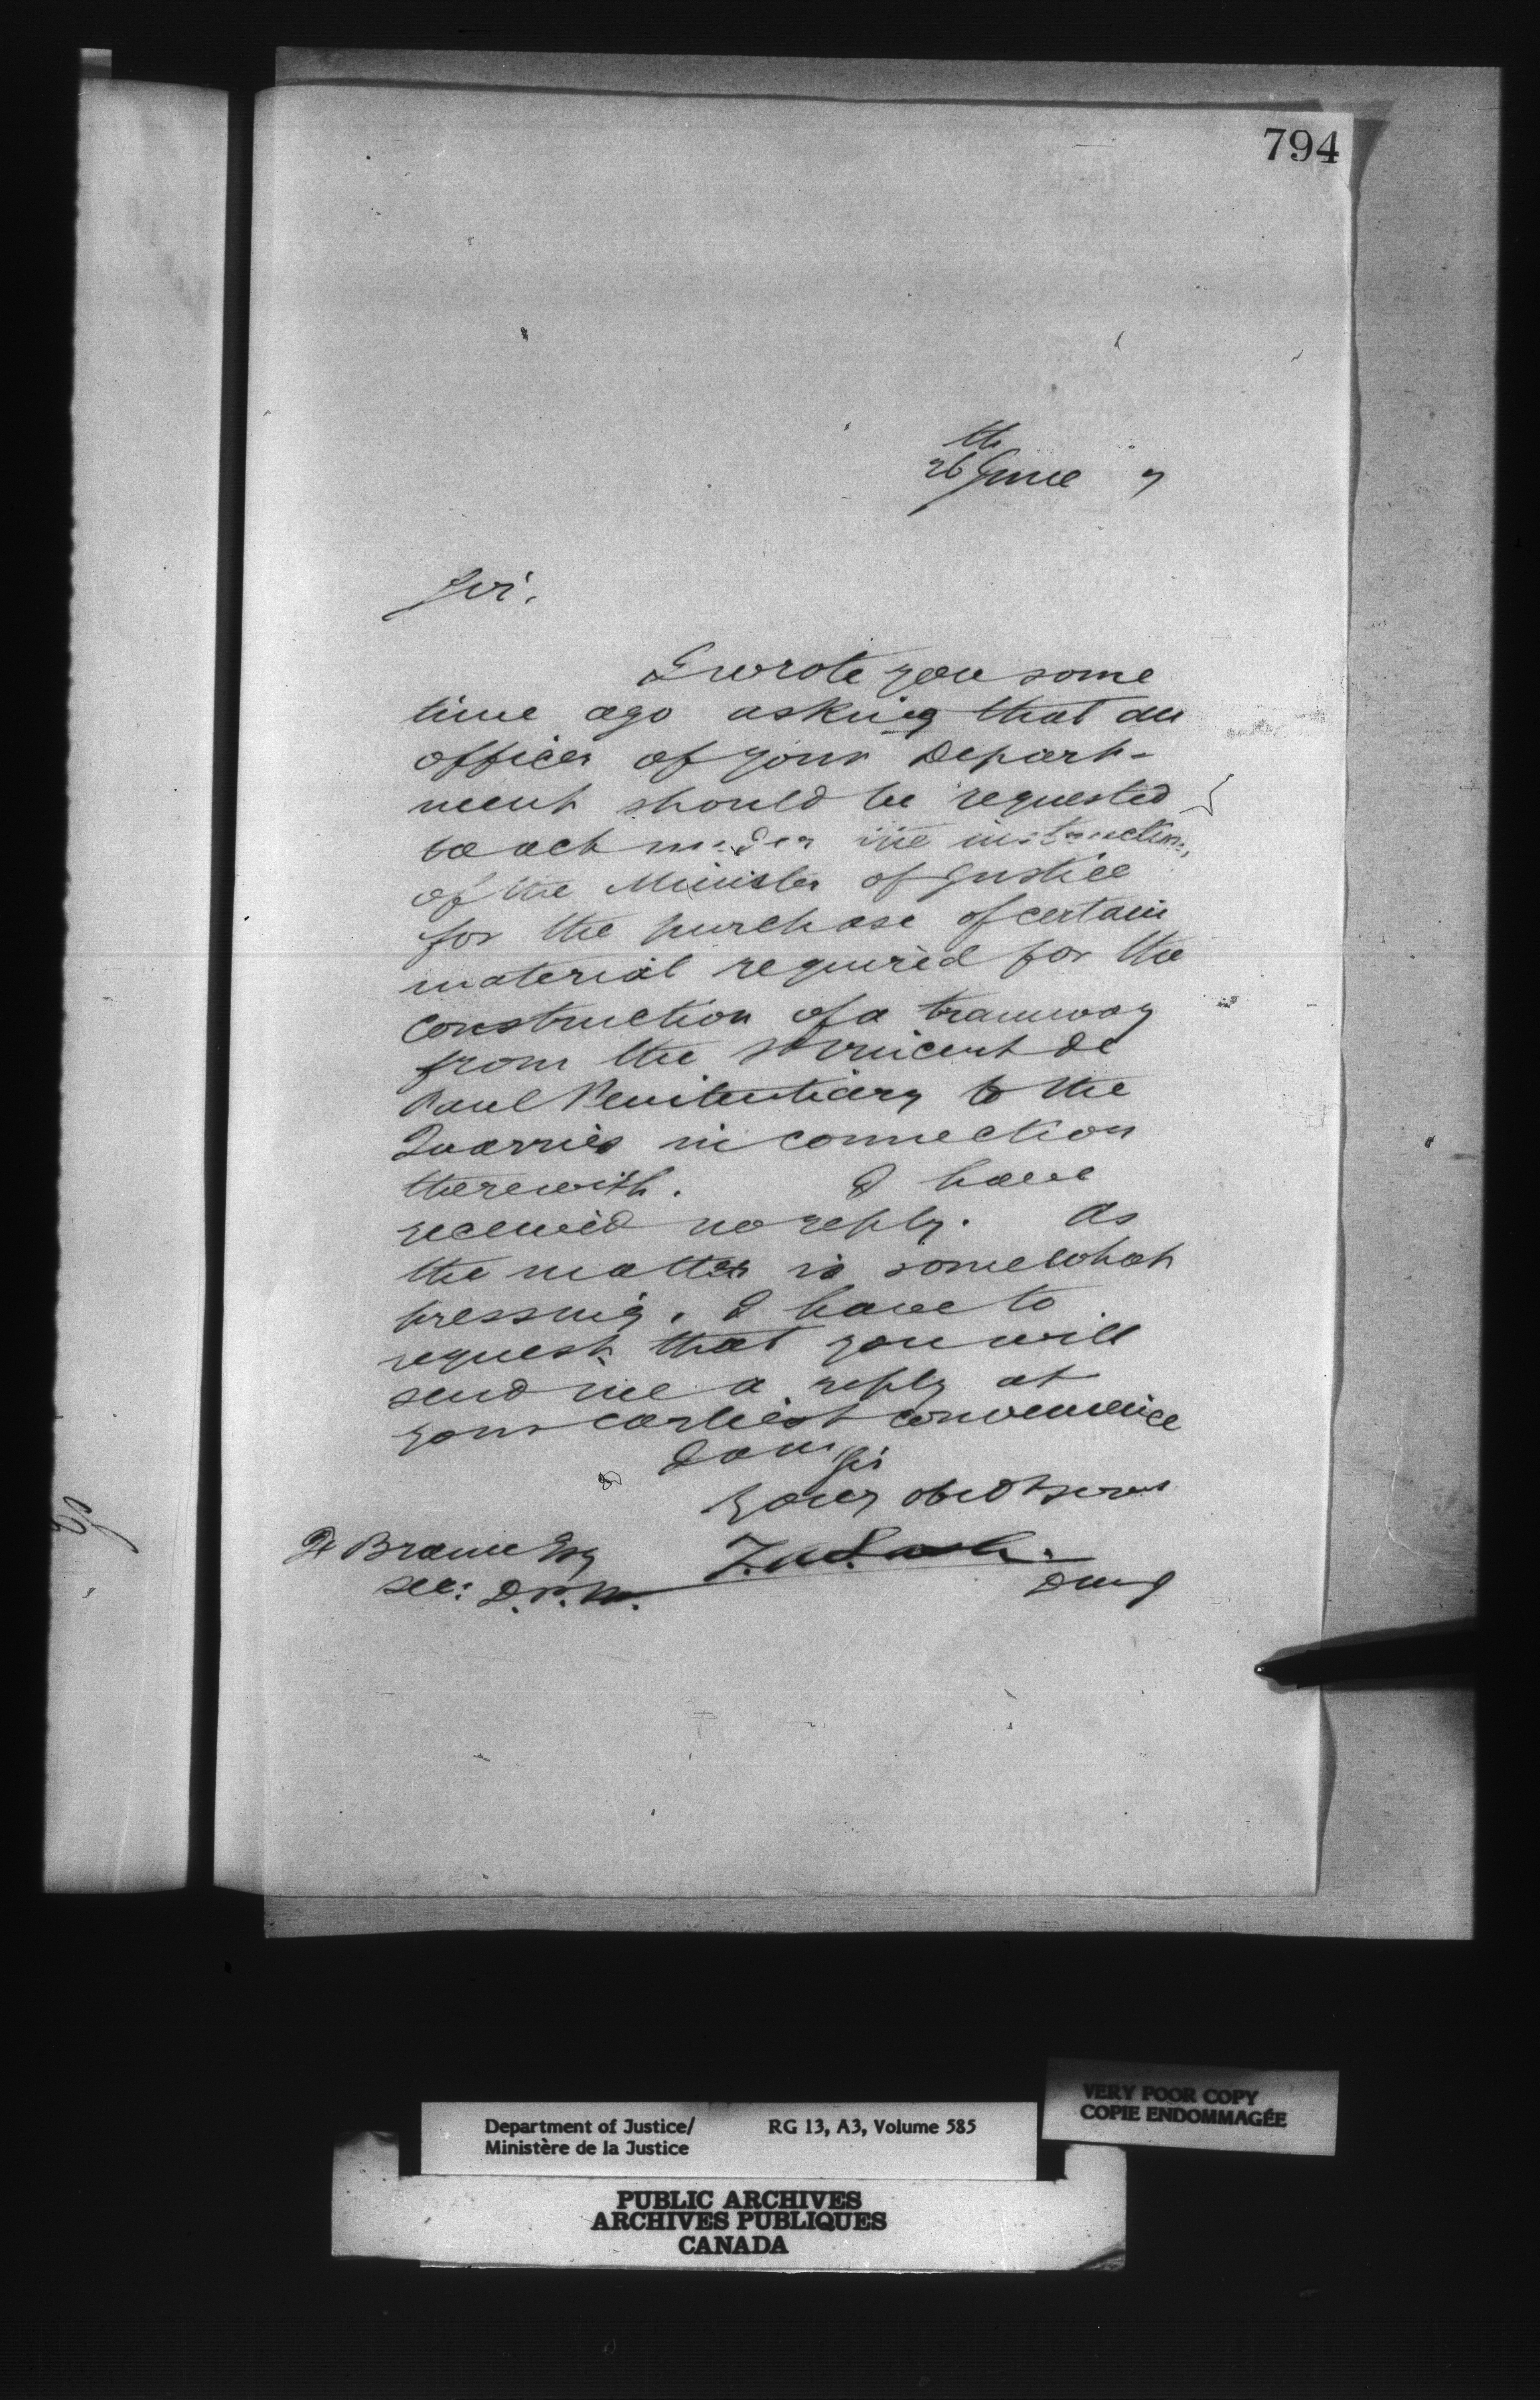 794
26th June 7
Sir,
I wrote you some
time ago asking that an
officer of your Depart-
ment should be requested
to act under the instructions
of the Minister of Justice
for the purchase of certain
material required for the
construction of a tramway
from the St Vincent de
Paul Penitentiary to the
Quarries in connection
therewith. I have
received no reply. As
the matter is somewhat
pressing, I have to
request that you will
send me a reply at
your earliest convenience
I am Sir
Your obedt servt
Z.A. Lash.
F Braun Esq
Sec: D.P.W.
DMJ
VERY POOR COPY
COPIE ENDOMMAGÉE
Department of Justice/ RG 13, A3, Volume 585
Ministère de la Justice
PUBLIC ARCHIVES
ARCHIVES PUBLIQUES
CANADA